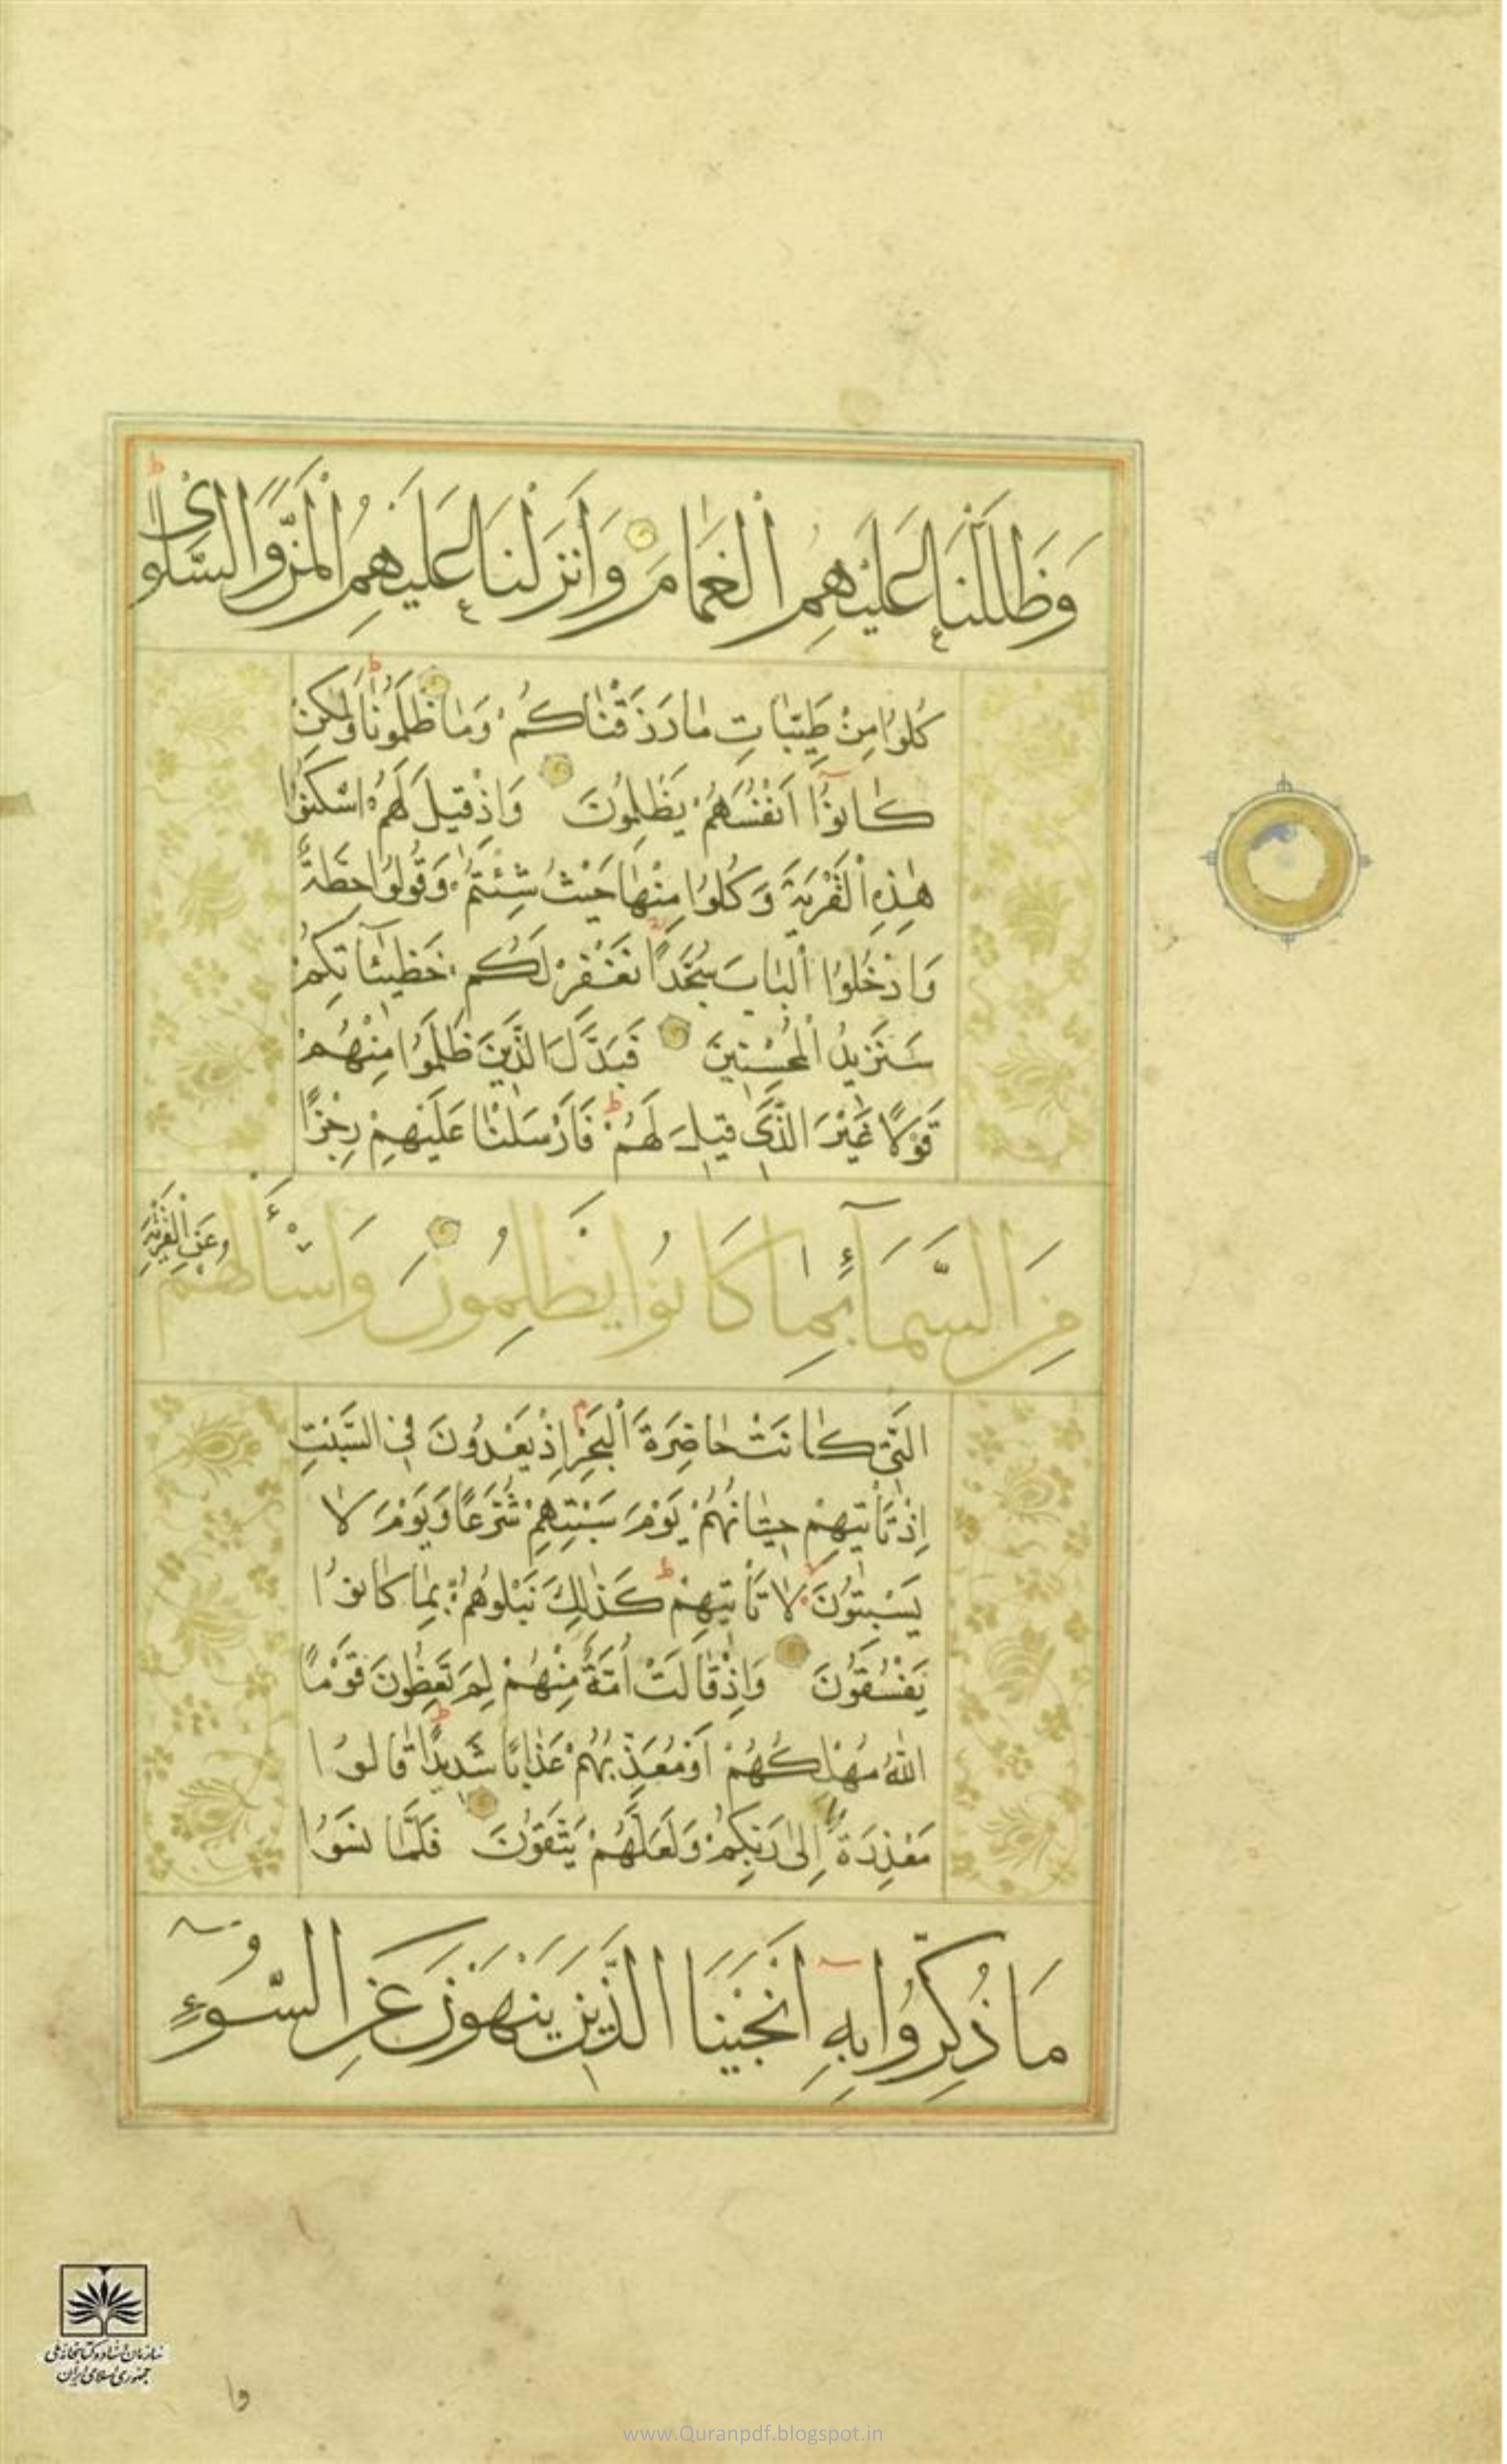 وَظَلَّلْنَا عَلَيْهِمُ الْغَمَامَ وَأَنْزَلْنَا عَلَيْهِمُ الْمَنَّ وَالسَّلْوَىٰ ط
كُلُوا مِنْ طَيِّبَاتِ مَا رَزَقْنَاكُمْ وَمَا ظَلَمُونَا ط وَلٰكِنْ
كَانُوٓا اَنْفُسَهُمْ يَظْلِمُونَ وَاِذْ قِيلَ لَهُمُ اسْكُنُوا
هٰذِهِ الْقَرْيَةَ وَكُلُوا مِنْهَا حَيْثُ شِئْتُمْ وَقُولُوا حِطَّةٌ
وَادْخُلُوا الْبَابَ سُجَّدًا نَغْفِرْ لَكُمْ خَطِيٓئَاتِكُمْ
سَنَزِيدُ الْمُحْسِنِينَ فَبَدَّلَ الَّذِينَ ظَلَمُوا مِنْهُمْ
قَوْلًا غَيْرَ الَّذِي قِيلَ لَهُمْ ط فَاَرْسَلْنَا عَلَيْهِمْ رِجْزًا
مِنَ السَّمَآءِ بِمَا كَانُوا يَظْلِمُونَ وَاسْأَلْهُمْ عَنِ الْقَرْيَةِ
الَّتِي كَانَتْ حَاضِرَةَ الْبَحْرِ م اِذْ يَعْدُونَ فِي السَّبْتِ
اِذْ تَأْتِيهِمْ حِيتَانُهُمْ يَوْمَ سَبْتِهِمْ شُرَّعًا وَيَوْمَ لَا
يَسْبِتُونَ لا لَا تَأْتِيهِمْ ط كَذٰلِكَ نَبْلُوهُمْ بِمَا كَانُوا
يَفْسُقُونَ وَاِذْ قَالَتْ اُمَّةٌ مِنْهُمْ لِمَ تَعِظُونَ قَوْمًا
اللّٰهُ مُهْلِكُهُمْ اَوْ مُعَذِّبُهُمْ عَذَابًا شَدِيدًا ط قَالُوا
مَعْذِرَةً اِلٰى رَبِّكُمْ وَلَعَلَّهُمْ يَتَّقُونَ فَلَمَّا نَسُوا
مَا ذُكِّرُوا بِهٖٓ اَنْجَيْنَا الَّذِينَ يَنْهَوْنَ عَنِ السُّوٓءِ
سازمان اسناد و کتابخانه ملی
جمهوری اسلامی ایران
وا
www.Quranpdf.blogspot.in